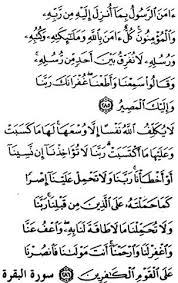 ءَامَنَ الرَّسُولُ بِمَا أُنزِلَ إِلَيْهِ مِن رَّبِّهِ
وَالْمُؤْمِنُونَ كُلٌّ ءَامَنَ بِاللَّهِ وَمَلَٰٓئِكَتِهِ وَكُتُبِهِ
وَرُسُلِهِ لَا نُفَرِّقُ بَيْنَ أَحَدٍ مِّن رُّسُلِهِ
وَقَالُوا سَمِعْنَا وَأَطَعْنَا غُفْرَانَكَ رَبَّنَا
وَإِلَيْكَ الْمَصِيرُ ٢٨٥
لَا يُكَلِّفُ اللَّهُ نَفْسًا إِلَّا وُسْعَهَا لَهَا مَا كَسَبَتْ
وَعَلَيْهَا مَا اكْتَسَبَتْ رَبَّنَا لَا تُؤَاخِذْنَا إِن نَّسِينَا
أَوْ أَخْطَأْنَا رَبَّنَا وَلَا تَحْمِلْ عَلَيْنَا إِصْرًا
كَمَا حَمَلْتَهُ عَلَى الَّذِينَ مِن قَبْلِنَا رَبَّنَا
وَلَا تُحَمِّلْنَا مَا لَا طَاقَةَ لَنَا بِهِ وَاعْفُ عَنَّا
وَاغْفِرْ لَنَا وَارْحَمْنَا أَنتَ مَوْلَىٰنَا فَانصُرْنَا
عَلَى الْقَوْمِ الْكَٰفِرِينَ ٢٨٦ سورة البقرة